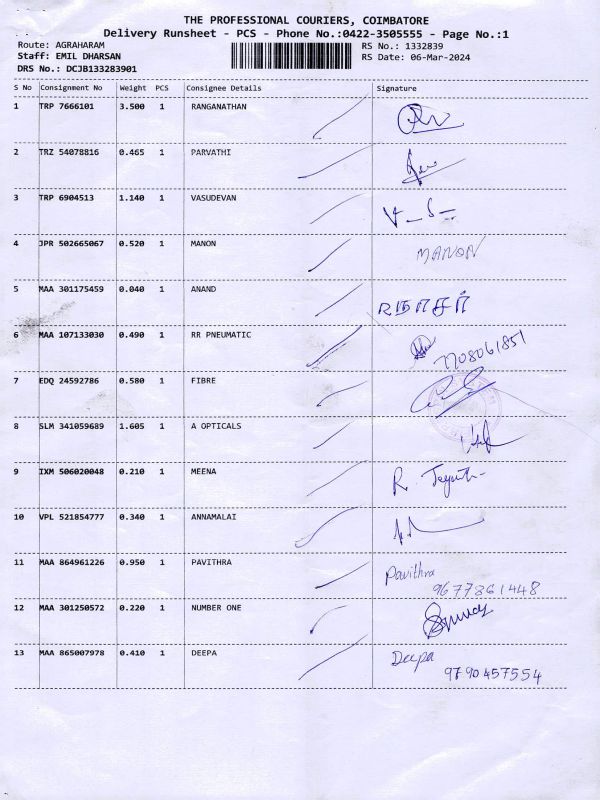 THE PROFESSIONAL COURIERS, COIMBATORE
Delivery Runsheet - PCS - Phone No.:0422-3505555 - Page No.:1
Route: AGRAHARAM
RS No.: 1332839
Staff: EMIL DHARSAN
RS Date: 06-Mar-2024
DRS No.: DCJB133283901
S No Consignment No Weight PCS Consignee Details Signature
1 TRP 7666101 3.500 1 RANGANATHAN
2 TRZ 54078816 0.465 1 PARVATHI
3 TRP 6904513 1.140 1 VASUDEVAN
4 JPR 502665067 0.520 1 MANON MANON
5 MAA 301175459 0.040 1 ANAND
6 MAA 107133030 0.490 1 RR PNEUMATIC 7708061851
7 EDQ 24592786 0.580 1 FIBRE
8 SLM 341059689 1.605 1 A OPTICALS
9 IXM 506020048 0.210 1 MEENA R.
10 VPL 521854777 0.340 1 ANNAMALAI
11 MAA 864961226 0.950 1 PAVITHRA Pavithra
9677361448
12 MAA 301250572 0.220 1 NUMBER ONE
13 MAA 865007978 0.410 1 DEEPA Deepa
9790457554